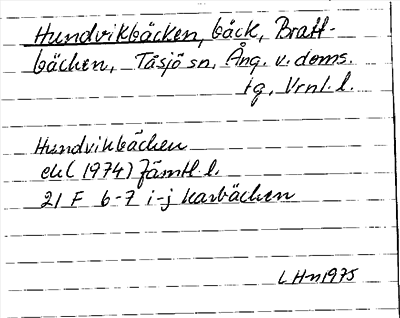 Hundvikbäcken, bäck, Bratt-
bäcken, Tåsjö sn, Ång. v. doms.
tg, Vrnl. l.
Hundvikbäcken
ek (1974) Jämtl. l.
21 F 6-7 i-j Karbäcken
LHn1975